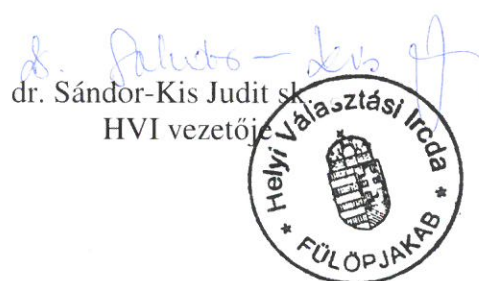 dr. Sándor-Kis Judit sk.
HVI vezetője
Helyi Választási Iroda
* FÜLÖPJAKAB *